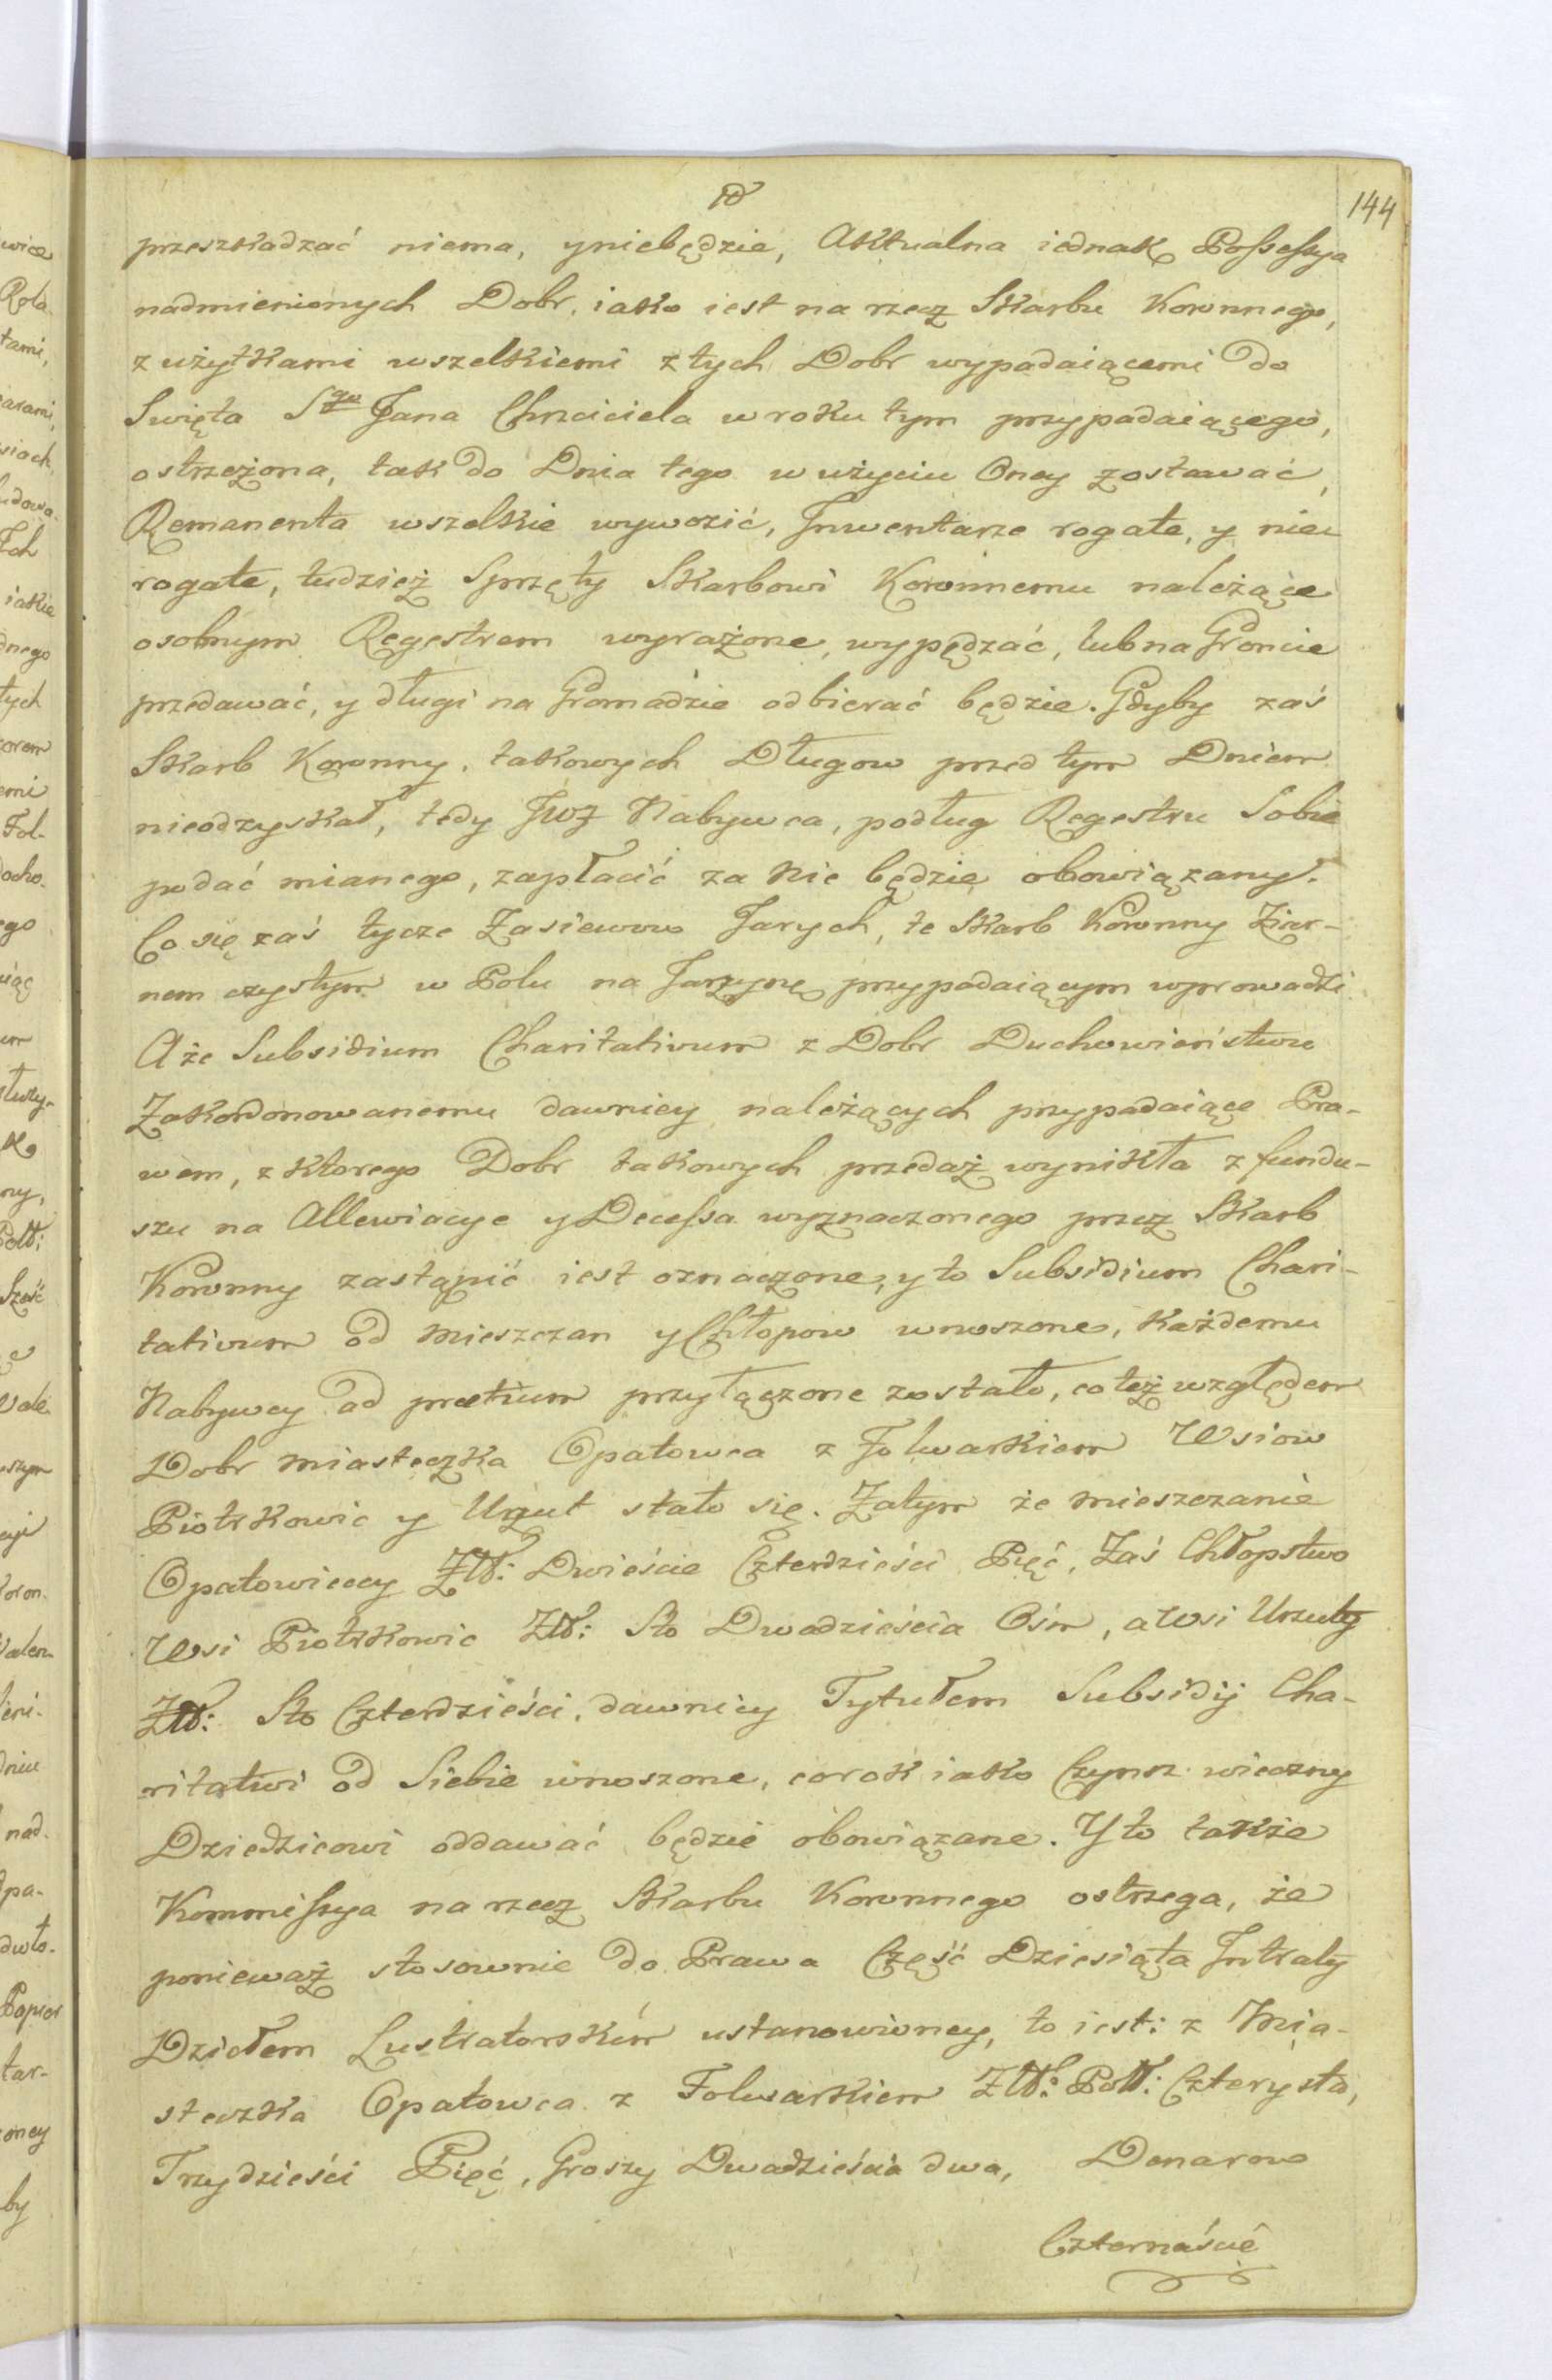 144
przeszkadzać niema, y niebędzie, Aktualna iednak Possessya
nadmienionych Dobr, iako iest na rzecz Skarbu Koronnego,
z użytkami wszelkiemi z tych Dobr wypadaiącemi do
Swięta Sgo Jana Chrzciciela w roku tym przypadaiącego,
ostrzeżona, tak do Dnia tego w użyciu Oney zostawać,
Remanenta wszelkie wywozić, Inwentarze rogate, y nie
rogate, tudzież Sprzęty Skarbowi Koronnemu należące
osobnym Regestrem wyrażone, wypędzać, lub na Groncie
przedawać, y długi na Gromadzie odbierać będzie. Gdyby zaś
Skarb Koronny, takowych Długow przed tym Dniem
nieodzyskał, tedy JWJ Nabywca, podług Regestru Sobie
podać mianego, zapłacić za nie będzie obowiązany.
Co się zaś tycze Zasiewow Jarych, te Skarb Koronny Ziar-
nem czystym w Polu na Jarzynę przypadaiącym wprowadzi
A że Subsidium Charitativum z Dobr Duchowieństwu
Zakordonowanemu dawniey należących przypadaiące Pra-
wem, z ktorego Dobr takowych przedaż wynikła z fundu-
szu na Allewiacye y Decessa wyznaczonego przez Skarb
Koronny zastąpić iest oznaczone, y to Subsidium Chari-
tativum od Mieszczan y Chłopow wnoszone, każdemu
Nabywcy ad pretium przyłączone zostało, co też względem
Dobr Miasteczka Opatowca z Folwarkiem Wsiow
Piotrkowic y Urzut stało się. Zatym że Mieszczanie
Opatowieccy Złł: Dwieście Czterdzieści Pięć, Zaś Chłopstwo
Wsi Piotrkowic Złł: Sto Dwadzieścia Ośm, a Wsi Urzuty
Złł: Sto Czterdzieści, dawniey Tytułem Subsidij Cha-
ritativi od Siebie wnoszone, corok iako Czynsz wieczny
Dziedzicowi oddawać będzie obowiązane. Y to także
Kommissya na rzecz Skarbu Koronnego ostrzega, że
ponieważ stosownie do Prawa Część Dziesiąta Intraty
Dziełem Lustratorskim ustanowioney, to iest: z Mia-
steczka Opatowca z Folwarkiem Złł: Poll: Czterysta,
Trzydzieści Pięć, Groszy Dwadzieścia dwa, Denarow
Czternaście